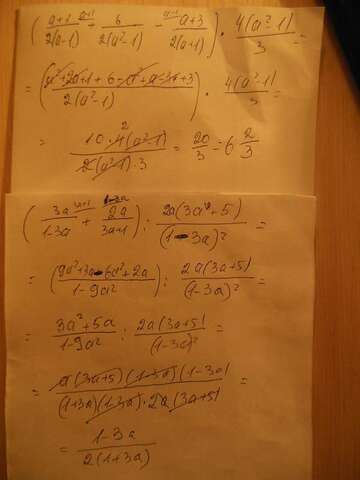 ( a+1 / 2(a-1) + 6 / 2(a²-1) - a+3 / 2(a+1) ) · 4(a²-1) / 3 =
= ( a²+2a+1+6-a²+a-3a+3 / 2(a²-1) ) · 4(a²-1) / 3 =
= 10·4(a²-1) / 2(a²-1)·3 = 20/3 = 6 2/3
( 3a / 1-3a + 2a / 3a+1 ) : 2a(3a+5) / (1-3a)² =
= ( 9a²+3a-6a²+2a / 1-9a² ) : 2a(3a+5) / (1-3a)² =
= 3a²+5a / 1-9a² : 2a(3a+5) / (1-3a)² =
= a(3a+5)(1-3a)(1-3a) / (1+3a)(1-3a)·2a(3a+5) =
= 1-3a / 2(1+3a)